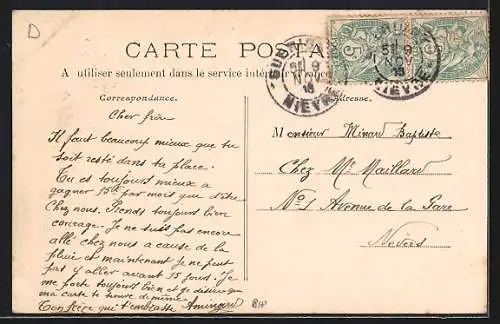 D
CARTE POSTALE
A utiliser seulement dans le service intérieur
Correspondance.
Adresse.
NIEVRE
NIEVRE
5
5
Cher frère
Il faut beaucoup mieux que tu
soit resté dans ta place.
Tu es toujours mieux a
gagner 15f par mois que d'être
Chez nous. Prends toujours bien
courage. Je ne suis pas encore
allé chez nous a cause de la
pluie et maintenant je ne peut
pas y aller avant 15 jours. Je
me porte toujours bien et je désire que
ma carte te trouve de même.
Ton frère qui t'embrasse
Monsieur Minard Baptiste
Chez Mr Maillard
No 1 Avenue de la Gare
Nevers